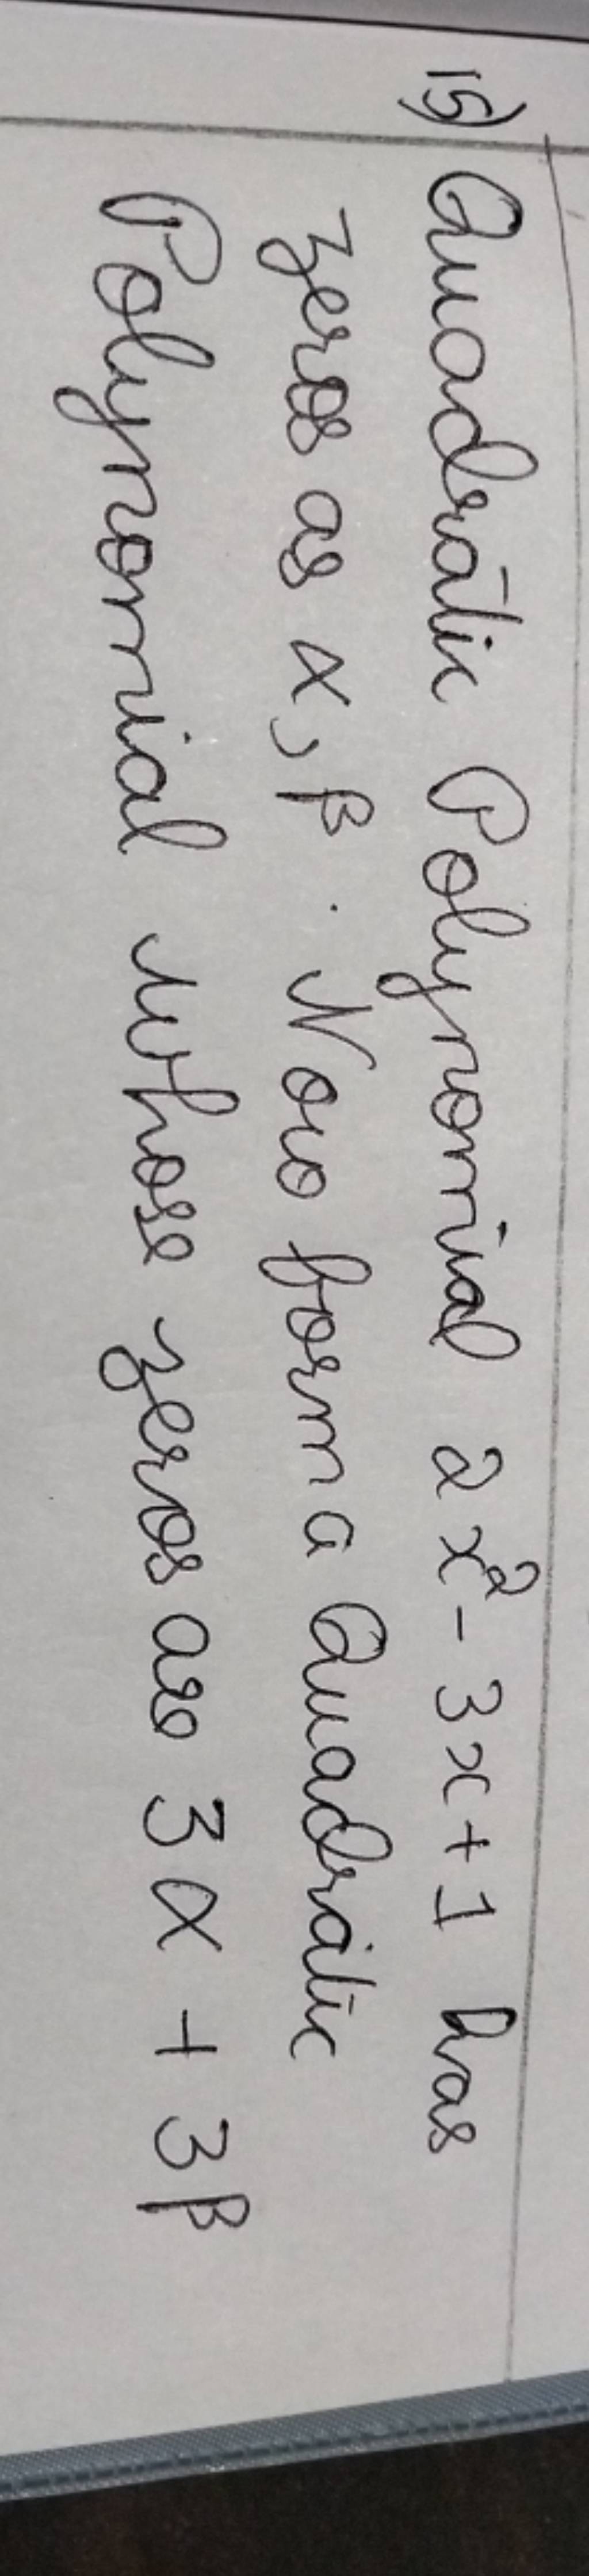 15) Quadratic Polynomial 2x² - 3x + 1 has
zeros as α, β. Now form a Quadratic
Polynomial whose zeros are 3α + 3β